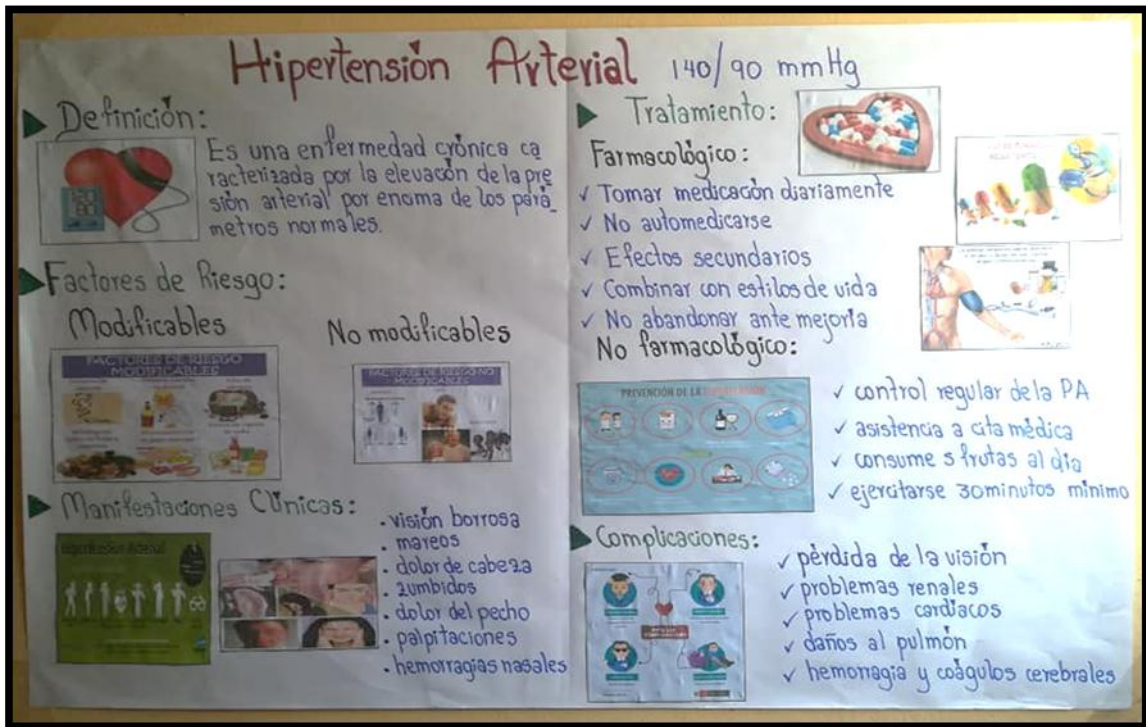 Hipertensión Arterial 140/90 mmHg
Definición:
Es una enfermedad crónica ca
racterizada por la elevación de la pre
sión arterial por enoma de los pará_
metros normales.
120
80
Factores de Riesgo:
Modificables
FACTORES DE RIESGO
MODIFICABLES
No modificables
FACTORES DE RIESGO NO
MODIFICABLES
Manifestaciones Clínicas:
. visión borrosa
. mareos
. dolor de cabeza
. zumbidos
. dolor del pecho
. palpitaciones
. hemorragias nasales
Tratamiento:
Farmacológico:
✓ Tomar medicación diariamente
✓ No automedicarse
✓ Efectos secundarios
✓ Combinar con estilos de vida
✓ No abandonar ante mejoría
No farmacológico:
PREVENCIÓN DE LA HIPERTENSIÓN
✓ control regular de la PA
✓ asistencia a cita médica
✓ consume 5 frutas al día
✓ ejercitarse 30minutos mínimo
Complicaciones:
✓ pérdida de la visión
✓ problemas renales
✓ problemas cardíacos
✓ daños al pulmón
✓ hemorragia y coágulos cerebrales